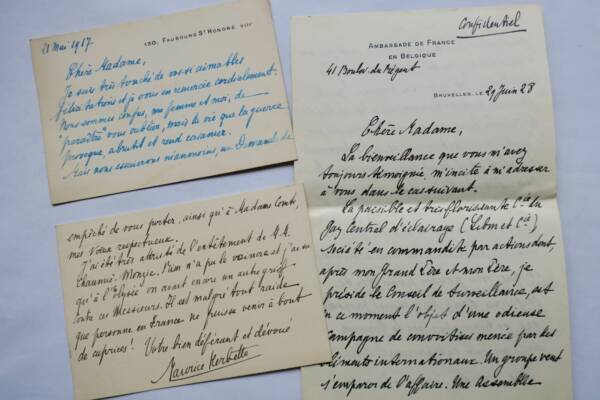 130, FAUBOURG St HONORÉ VIIIe
21 Mai 1917
Chère Madame,
Je suis très touché de vos si aimables
félicitations et je vous en remercie cordialement.
Nous sommes confus, ma femme et moi, de
"paraître" vous oublier, mais la vie que la guerre
provoque, abrutit et rend casanier.
Mais nous essaierons néanmoins, un Dimanche de
empêché de vous porter, ainsi qu'à Madame Comte,
mes vœux respectueux.
J'ai été très attristé de l'entêtement de M.M.
Chaumié, Monzie. Rien n'a pu le vaincre et j'ai su
qu'à l'Elysée on avait encore un autre grief
contre ces Messieurs. Il est malgré tout raide
que personne en France ne puisse venir à bout
de caprices! Votre bien déférant et dévoué
Maurice Herbette
Confidentiel
AMBASSADE DE FRANCE
EN BELGIQUE
41 Boulev. du Régent
BRUXELLES, LE 29 Juin 28
Chère Madame,
La bienveillance que vous m'avez
toujours témoignée, m'incite à m'adresser
à vous, dans le cas suivant.
La paisible et très florissante Cie du
Gaz Central d'éclairage (Lebon et Cie)
société en commandite par actions dont,
après mon Grand Père et mon Père, je
préside le Conseil de Surveillance, est
en ce moment l'objet d'une odieuse
campagne de convoitises menée par des
éléments internationaux. Un groupe veut
s'emparer de l'affaire. Une Assemblée